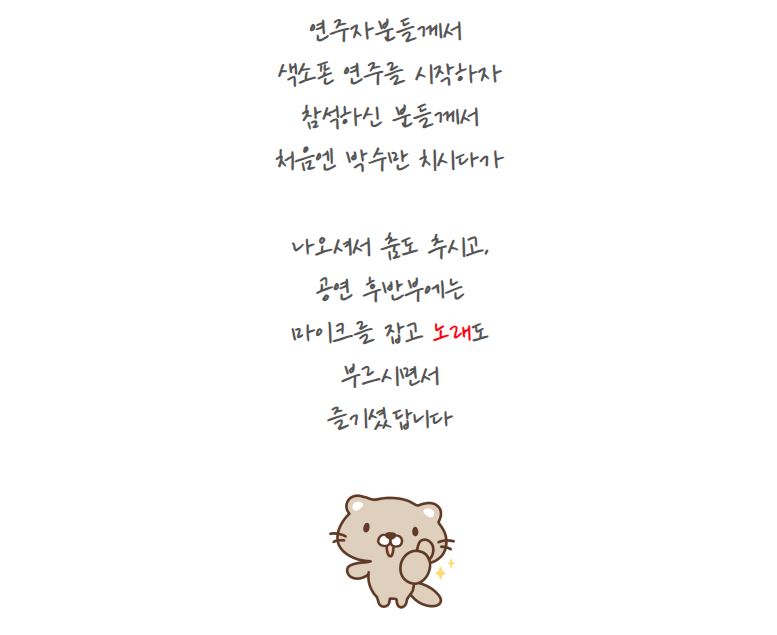 연주자분들께서
색소폰 연주를 시작하자
참석하신 분들께서
처음엔 박수만 치시다가
나오셔서 춤도 추시고,
공연 후반부에는
마이크를 잡고 노래도
부르시면서
즐기셨답니다